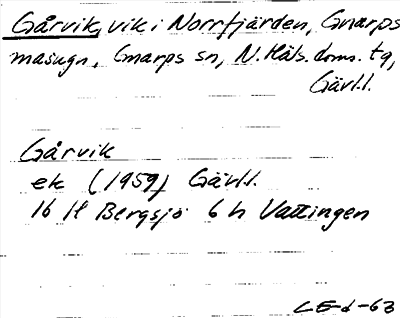 Gårvik, vik i Norrfjärden, Gnarps
masugn, Gnarps sn, N. Häls. doms. tg,
Gävl.l.
Gårvik
ek (1959) Gävl.l.
16 H Bergsjö 6 h Vattingen